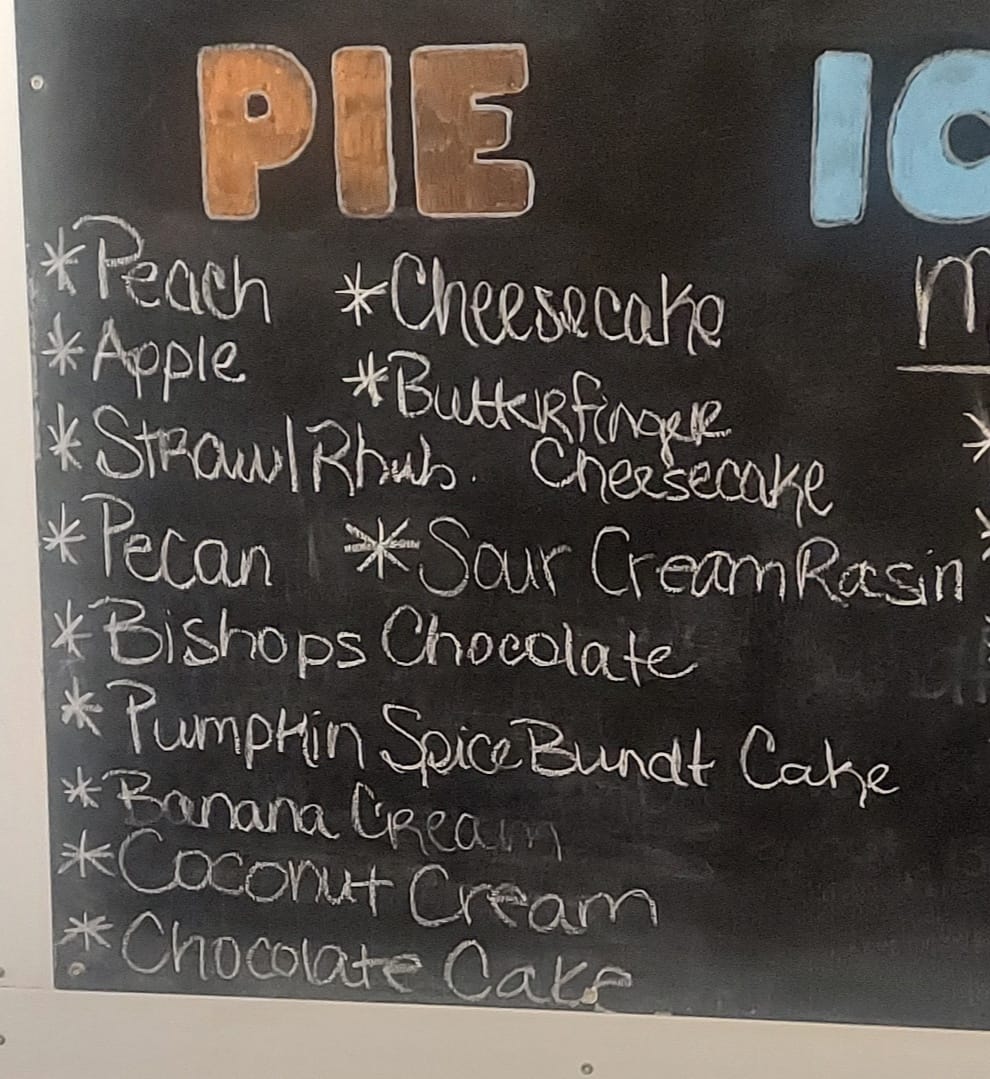 PIE
*Peach
*Apple
*Straw/Rhub.
*Pecan
*Cheesecake
*Butterfinger
Cheesecake
*Sour Cream Rasin
*Bishops Chocolate
*Pumpkin Spice Bundt Cake
*Banana Cream
*Coconut Cream
*Chocolate Cake
IC
m